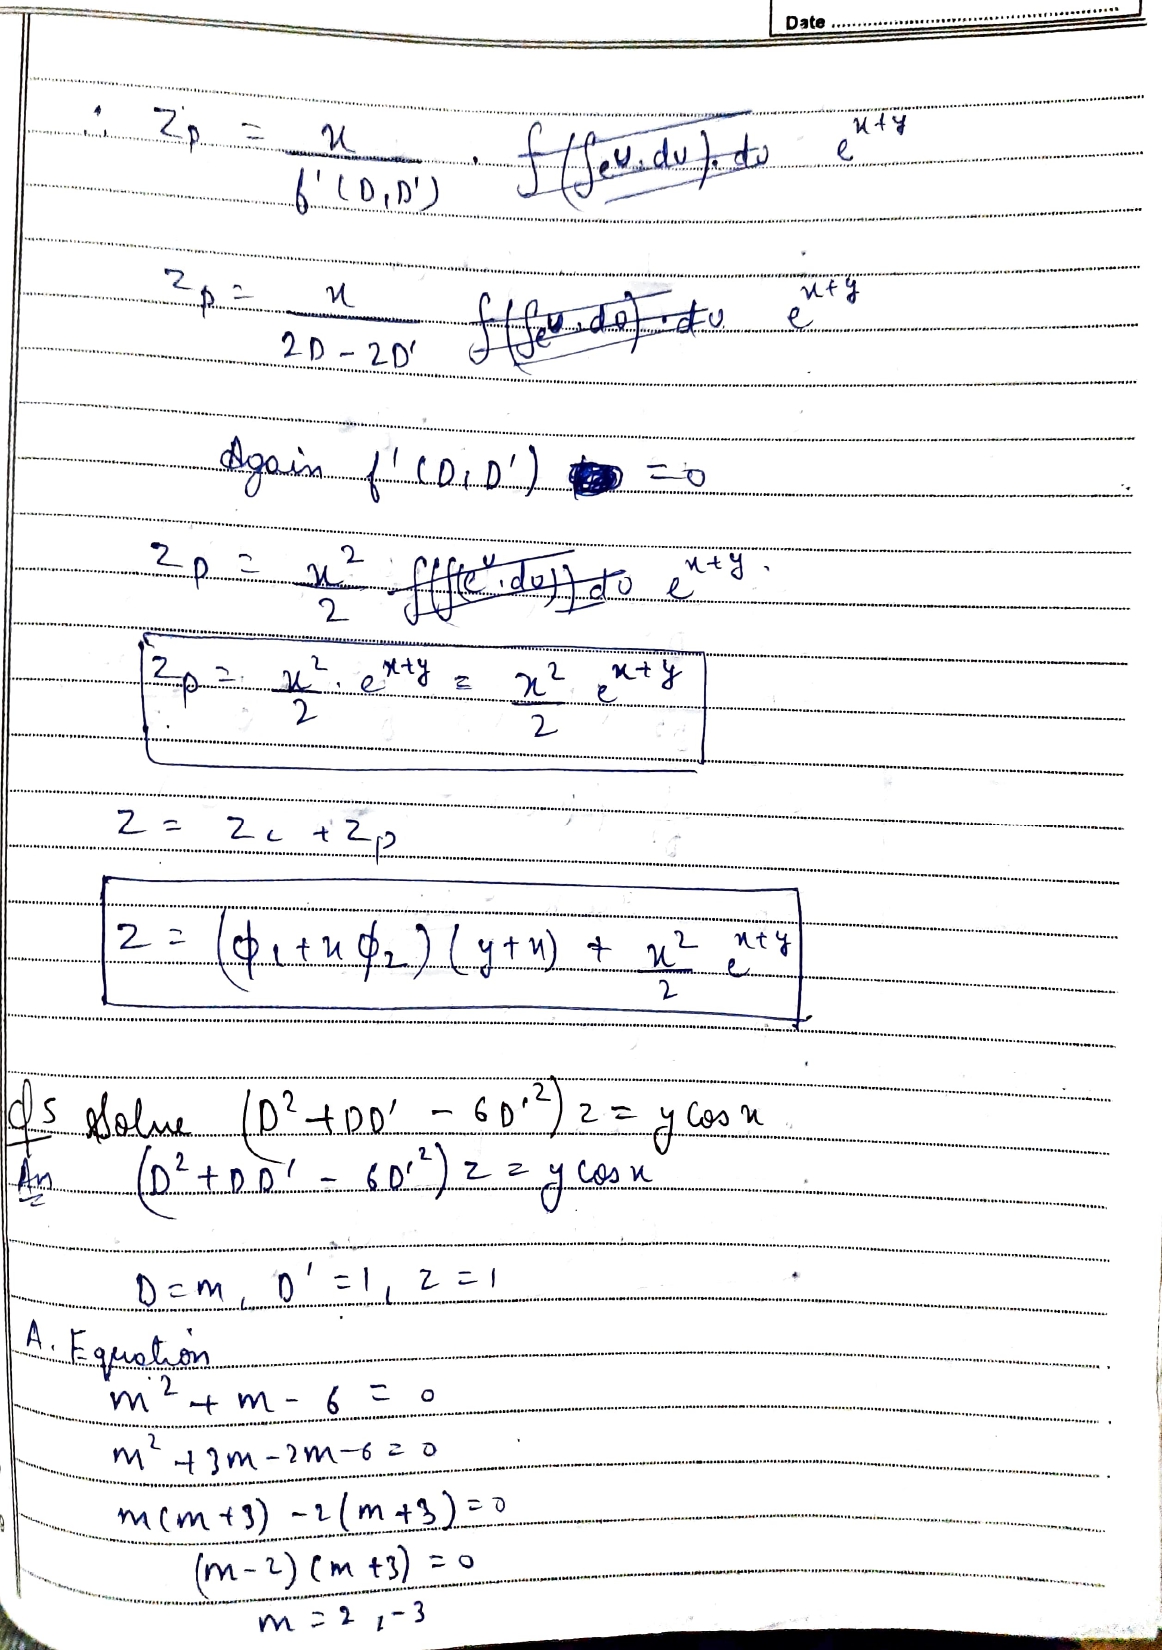 Date
∴ Zp = x / f'(D,D') . ∫(∫e^u.du).du e^(x+y)
Zp = x / (2D - 2D') ∫(∫e^u.du).du e^(x+y)
Again f'(D,D') = 0
Zp = x²/2 ∫(∫(e^u.du)) du e^(x+y).
Zp = x²/2 . e^(x+y) = x²/2 e^(x+y)
Z = Zc + Zp
Z = (ϕ1 + x ϕ2) (y+x) + x²/2 e^(x+y)
Q5 Solve (D² + DD' - 6D'²) z = y cos x
An (D² + DD' - 6D'²) z = y cos x
D = m, D' = 1, z = 1
A. Equation
m² + m - 6 = 0
m² + 3m - 2m - 6 = 0
m(m+3) - 2(m+3) = 0
(m-2) (m+3) = 0
m = 2, -3